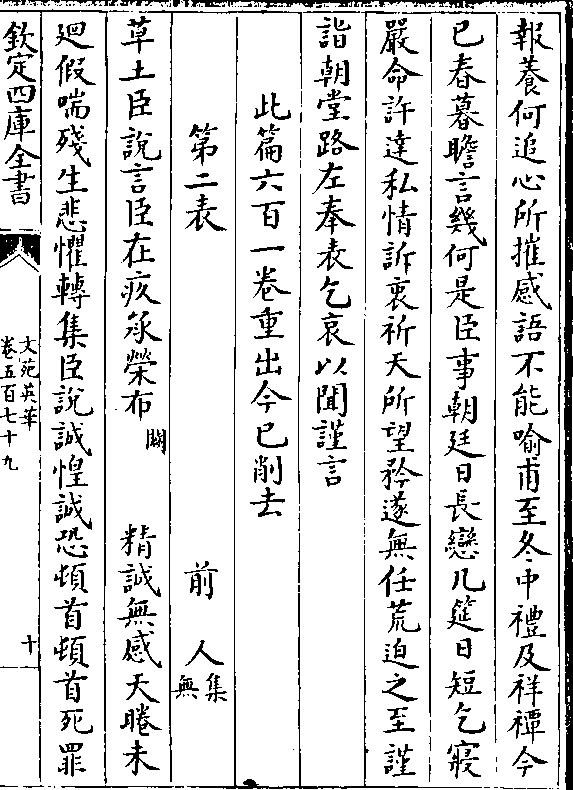 報養何追心所摧感語不能喻甫至冬中禮及祥禫今
已春暮瞻言幾何是臣事朝廷日長戀几筵日短乞寢
嚴命許達私情訴衷祈天所望矜遂無任荒迫之至謹
詣朝堂路左奉表乞哀以聞謹言
此篇六百一卷重出今已削去
第二表 前人集無
草土臣說言臣在疚承榮布闕 精誠無感天睠未
廻假喘殘生悲懼轉集臣說誠惶誠恐頓首頓首死罪
欽定四庫全書
文苑英華
卷五百七十九
十